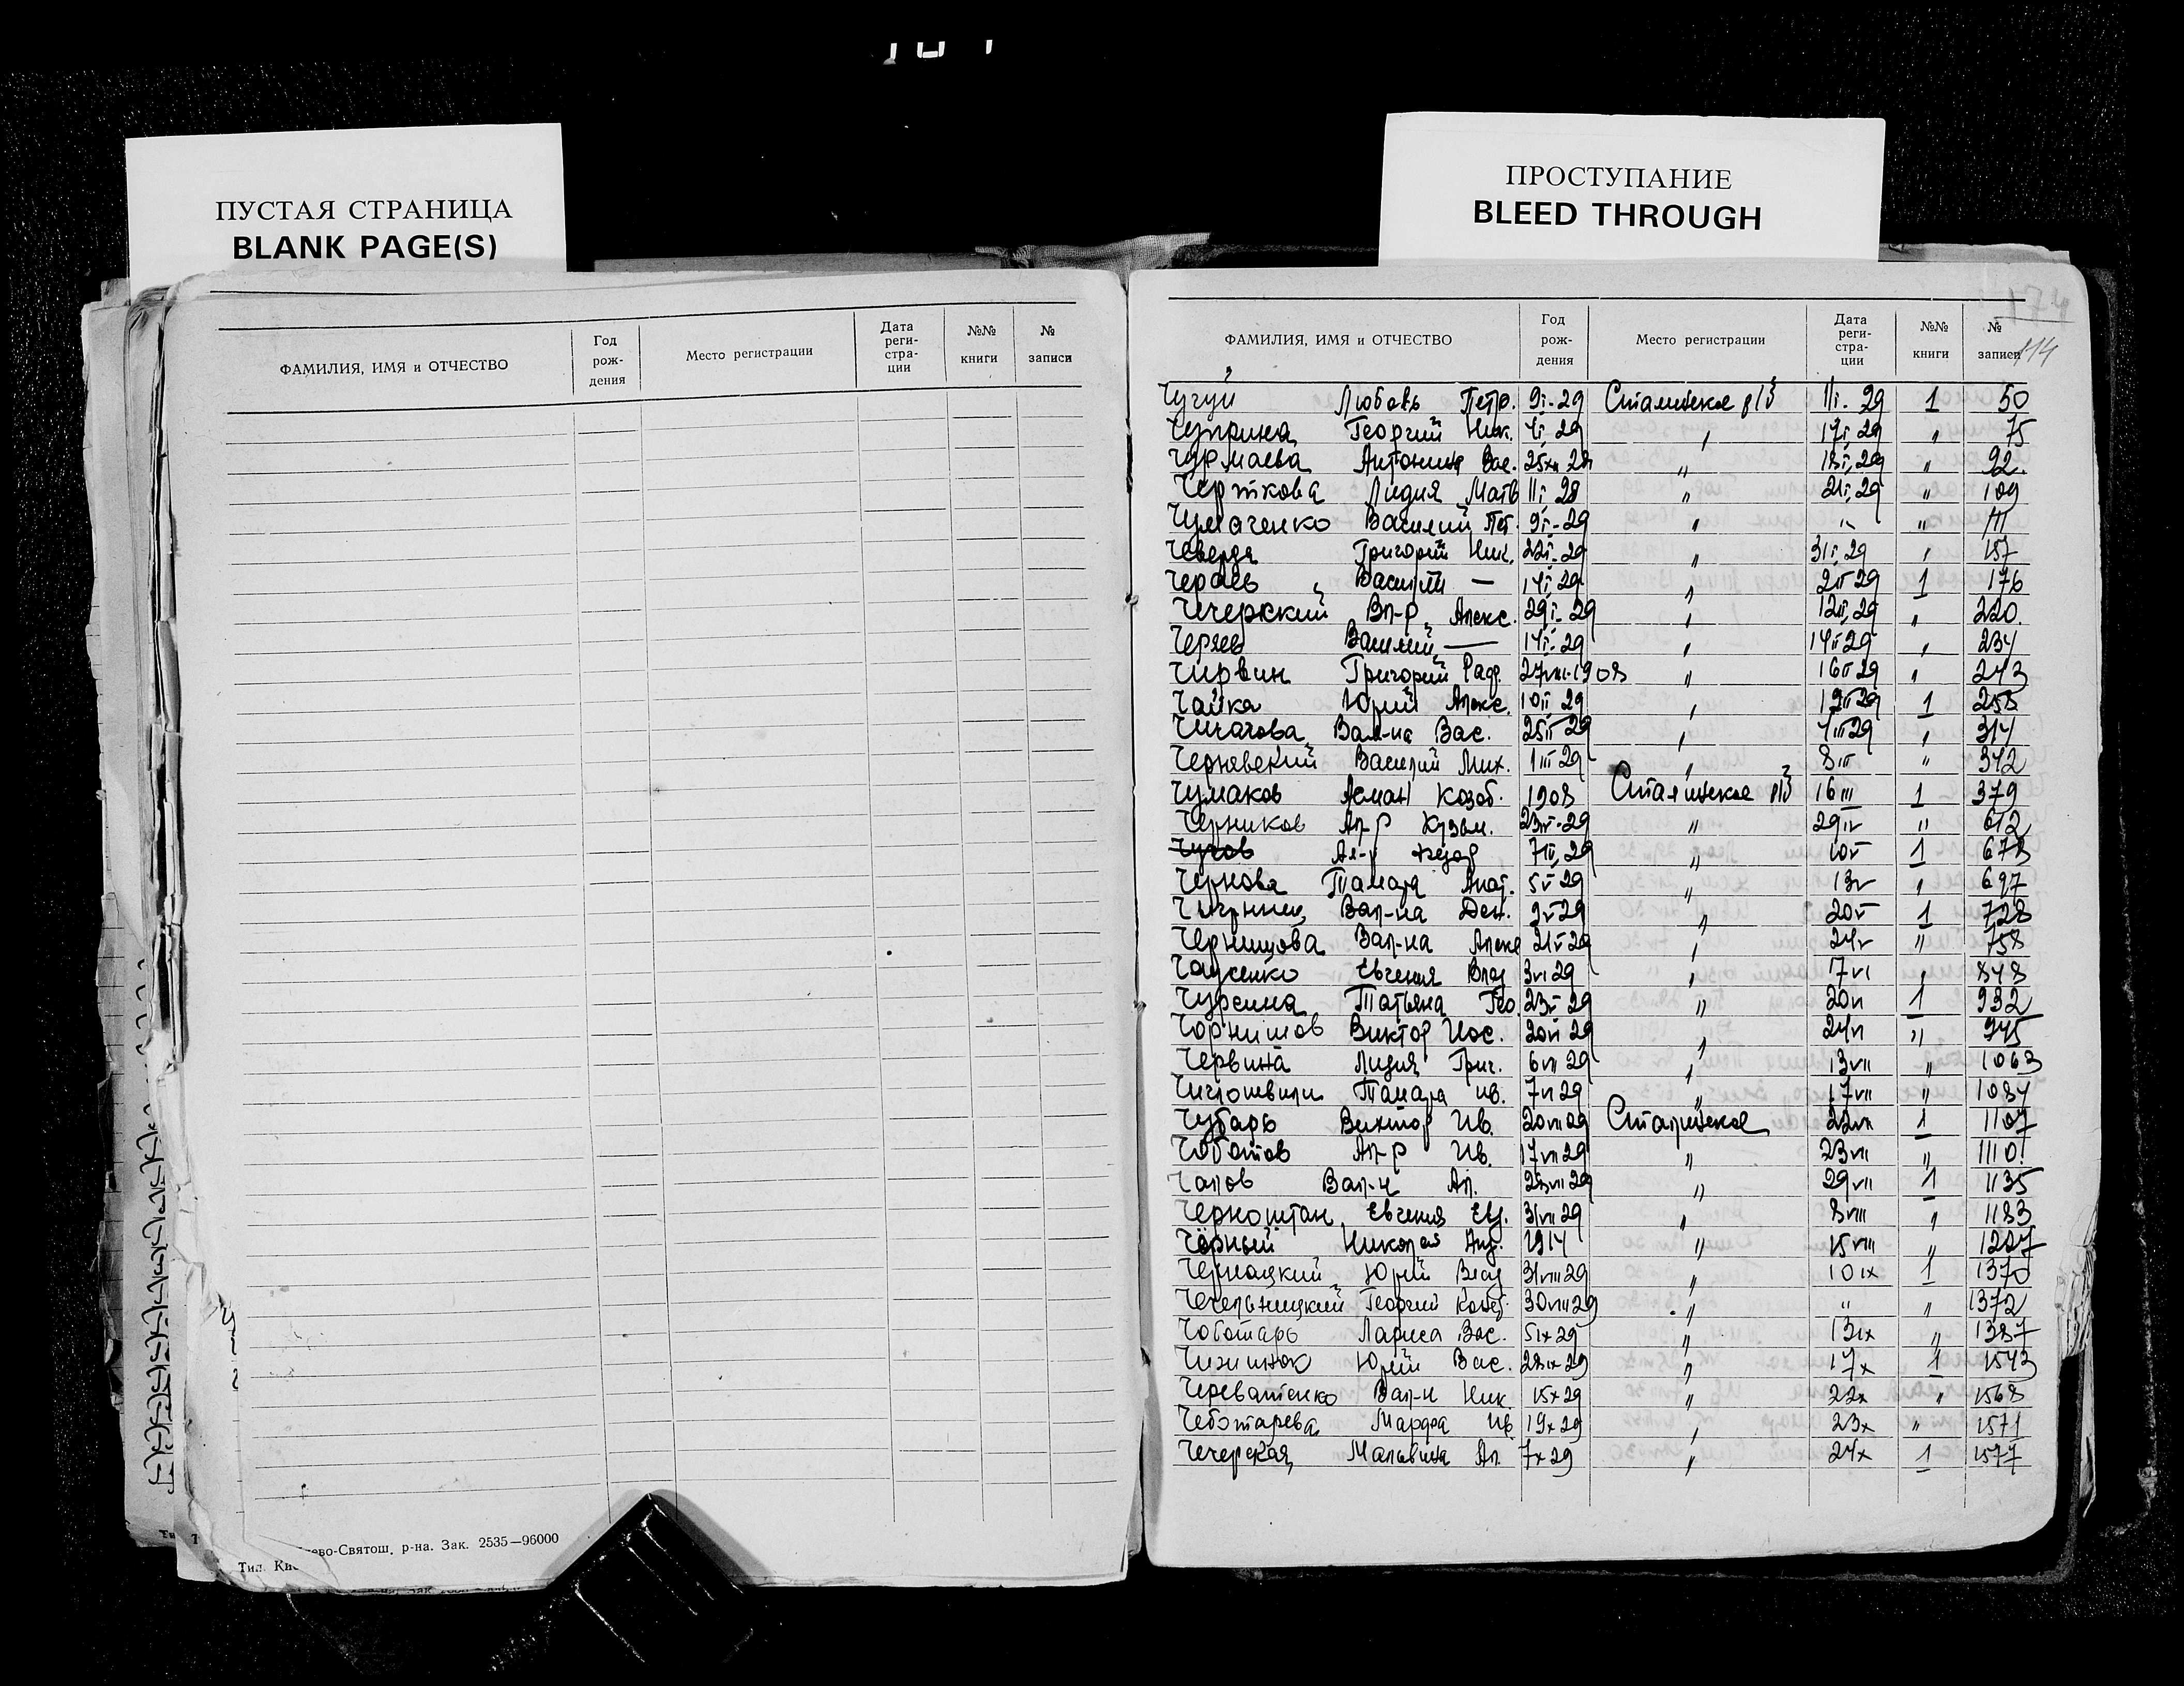 ПУСТАЯ СТРАНИЦА
BLANK PAGE(S)
ПРОСТУПАНИЕ
BLEED THROUGH
ФАМИЛИЯ, ИМЯ и ОТЧЕСТВО Год рож- дения Место регистрации Дата реги- стра- ции №№ книги № записи
Тип. Ки ево-Святош. р-на. Зак. 2535—96000
174
114
ФАМИЛИЯ, ИМЯ и ОТЧЕСТВО Год рож- дения Место регистрации Дата реги- стра- ции №№ книги № записи
Чугуй Любовь Петр. 9I-29 Сталинское р/б 11I-29 1 50
Чуприна Георгий Ник. 4I-29 " 17I-29 " 75
Чурмаева Антонина Вас. 25XII 28 " 18I-29 " 92.
Черткова Лидия Матв 11I 29 " 21I-29 " 109
Чумаченко Василий Пет. 9I-29 " " " 111
Чеверда Григорий Ник. 22I-29 " 31I-29 " 157
Василий — 14I-29 " 2II 29 1 176
Чечерский Вл-р Алекс. 29I-29 " 12II-29 " 220.
Черяев Василий — 14I-29 " 14II 29 " 234
Чирвин Григорий 27VIII-1908 " 16II 29 " 243
Чайка Юрий Алекс. 10II 29 " 19II 29 1 258
Чичагова Вал-на Вас. 25II 29 " 4III 29 " 314
Чернявский Василий Мих. 1III 29 " 8III " 342
Чумаков 1908 Сталинское р/б 16III 1 379
Черников Ал-р Кузьм. 23IV-29 " 29IV " 612
Чугов 7IV-29 " 10V 1 678
Чернова Тамара Анат. 5V 29 " 13V " 697
Вал-на Дем. 9V 29 " 20V 1 728
Чернышова Вал-на Алекс 21V 29 " 24V " 758
Чаусенко Евгения Влад 3VI 29 " 17VI " 848
Чурсина Татьяна Гео. 23V 29 " 20VI 1 932
Чорнишов Виктор Иос. 20VI 29 " 24VI " 945
Червина Лидия Григ. 6VII 29 " 13VII " 1063
Тамара Ив. 7VI 29 " 17VII " 1084
Чубарь Виктор Ив. 20VII 29 Сталинское 22VII 1 1107
Чоботов Ал-р Ив. 17VII 29 " 23VII " 1110
Чапов Вал-н Ал. 28VII 29 " 29VII 1 1135
Черноштан Евгения Евг. 31VII 29 " 8VIII " 1183
Чёрный Николай Анд. 1914 " 15VIII " 1227
Чернацкий Юрий Влад 31VIII 29 " 10IX 1 1370
Чечельницкий Георгий 30VIII 29 " " " 1372
Чоботарь Лариса Вас. 5IX 29 " 13IX " 1387
Чижинок Юрий Вас. 28IX 29 " 17X 1 1543
Череватенко Вал-н Ник. 15X 29 " 22X " 1568
Чеботарева Марфа Ив 19X 29 " 23X " 1571
Чечерская Мальвина Ал. 7X 29 " 24X 1 1577